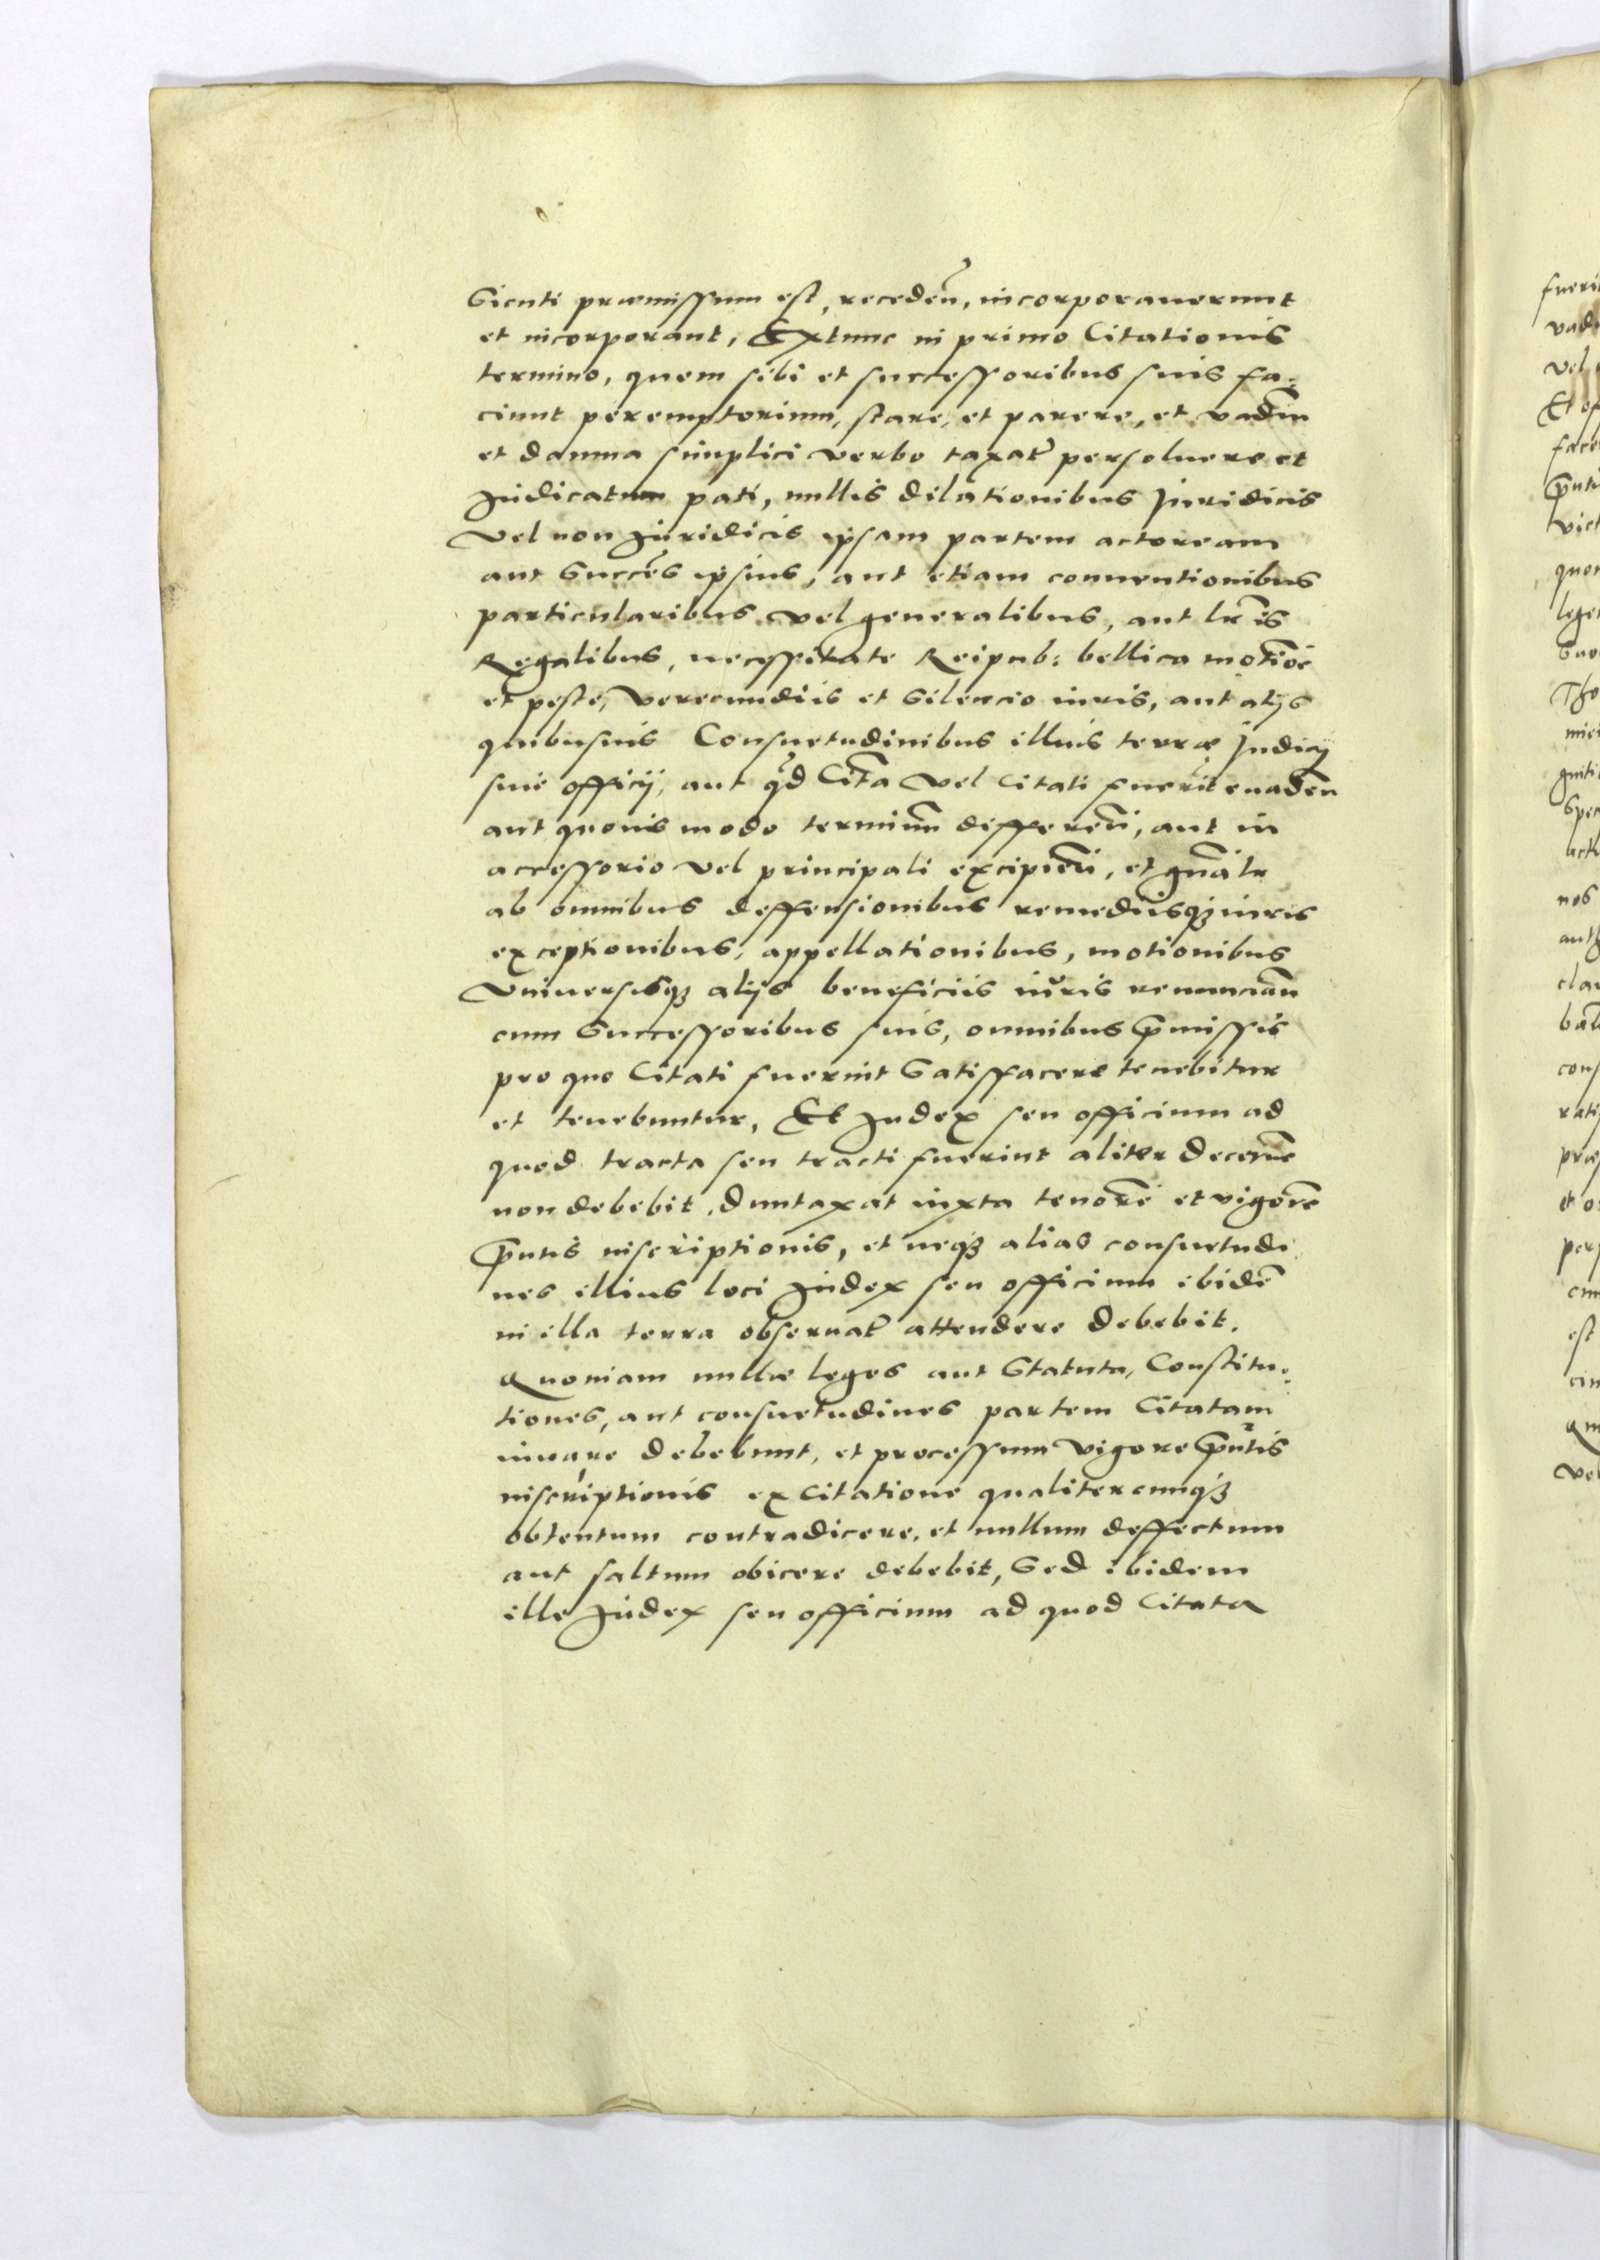 Sicuti præmissum est, receden̄, incorporauerunt
et incorporant, Extunc in primo Citationis
termino, quem sibi et successoribus suis fa-
ciunt peremptorium, stare, et parere, et vadiū
et damna simplici verbo taxat̃ persoluere et
Iudicatum pati, nullis dilationibus Iuridicis
vel non Iuridicis ipsam partem actoream
aut Succes̃ ipsius, aut etiam conuentionibus
particularibus vel generalibus, aut lr̃is
Regalibus, necessitate Reipub: bellica motiõe
et peste, verecundiis et Silencio iuris, aut alijs
quibusuis Consuetudinibus illius terræ Iudicij
siue officij, aut qd̃ Cit̃a vel Citati fuerit euaden̄
aut quouis modo terminũ differen̄, aut in
accessorio vel principali excipien̄, et gñalr
ab omnibus deffensionibus remediisqꝫ iuris
exceptionibus, appellationibus, motionibus
Vniuersisqꝫ alijs beneficiis iuris renuncian̄
cum Successoribus suis, omnibus p̄missis
pro quo Citati fuerint Satisfacere tenebitur
et tenebuntur, Et Iudex seu officium ad
quod tracta seu tracti fuerint aliter decerne̅
non debebit, Duntaxat iuxta tenorẽ et vigorẽ
p̄ntis inscriptionis, et neqꝫ alias consuetudi
nes illius loci Iudex seu officium ibidẽ
in illa terra obseruat̃ attendere debebit.
Quoniam nullæ leges aut Statuta, Constitu-
tiones, aut consuetudines partem Citatam
iuuare debebunt, et processum vigore p̄ntis
inscriptionis ex Citatione qualitercumqꝫ
obtentum contradicere, et nullum deffectum
aut saltum obicere debebit, Sed ibidem
ille Iudex seu officium ad quod Citata